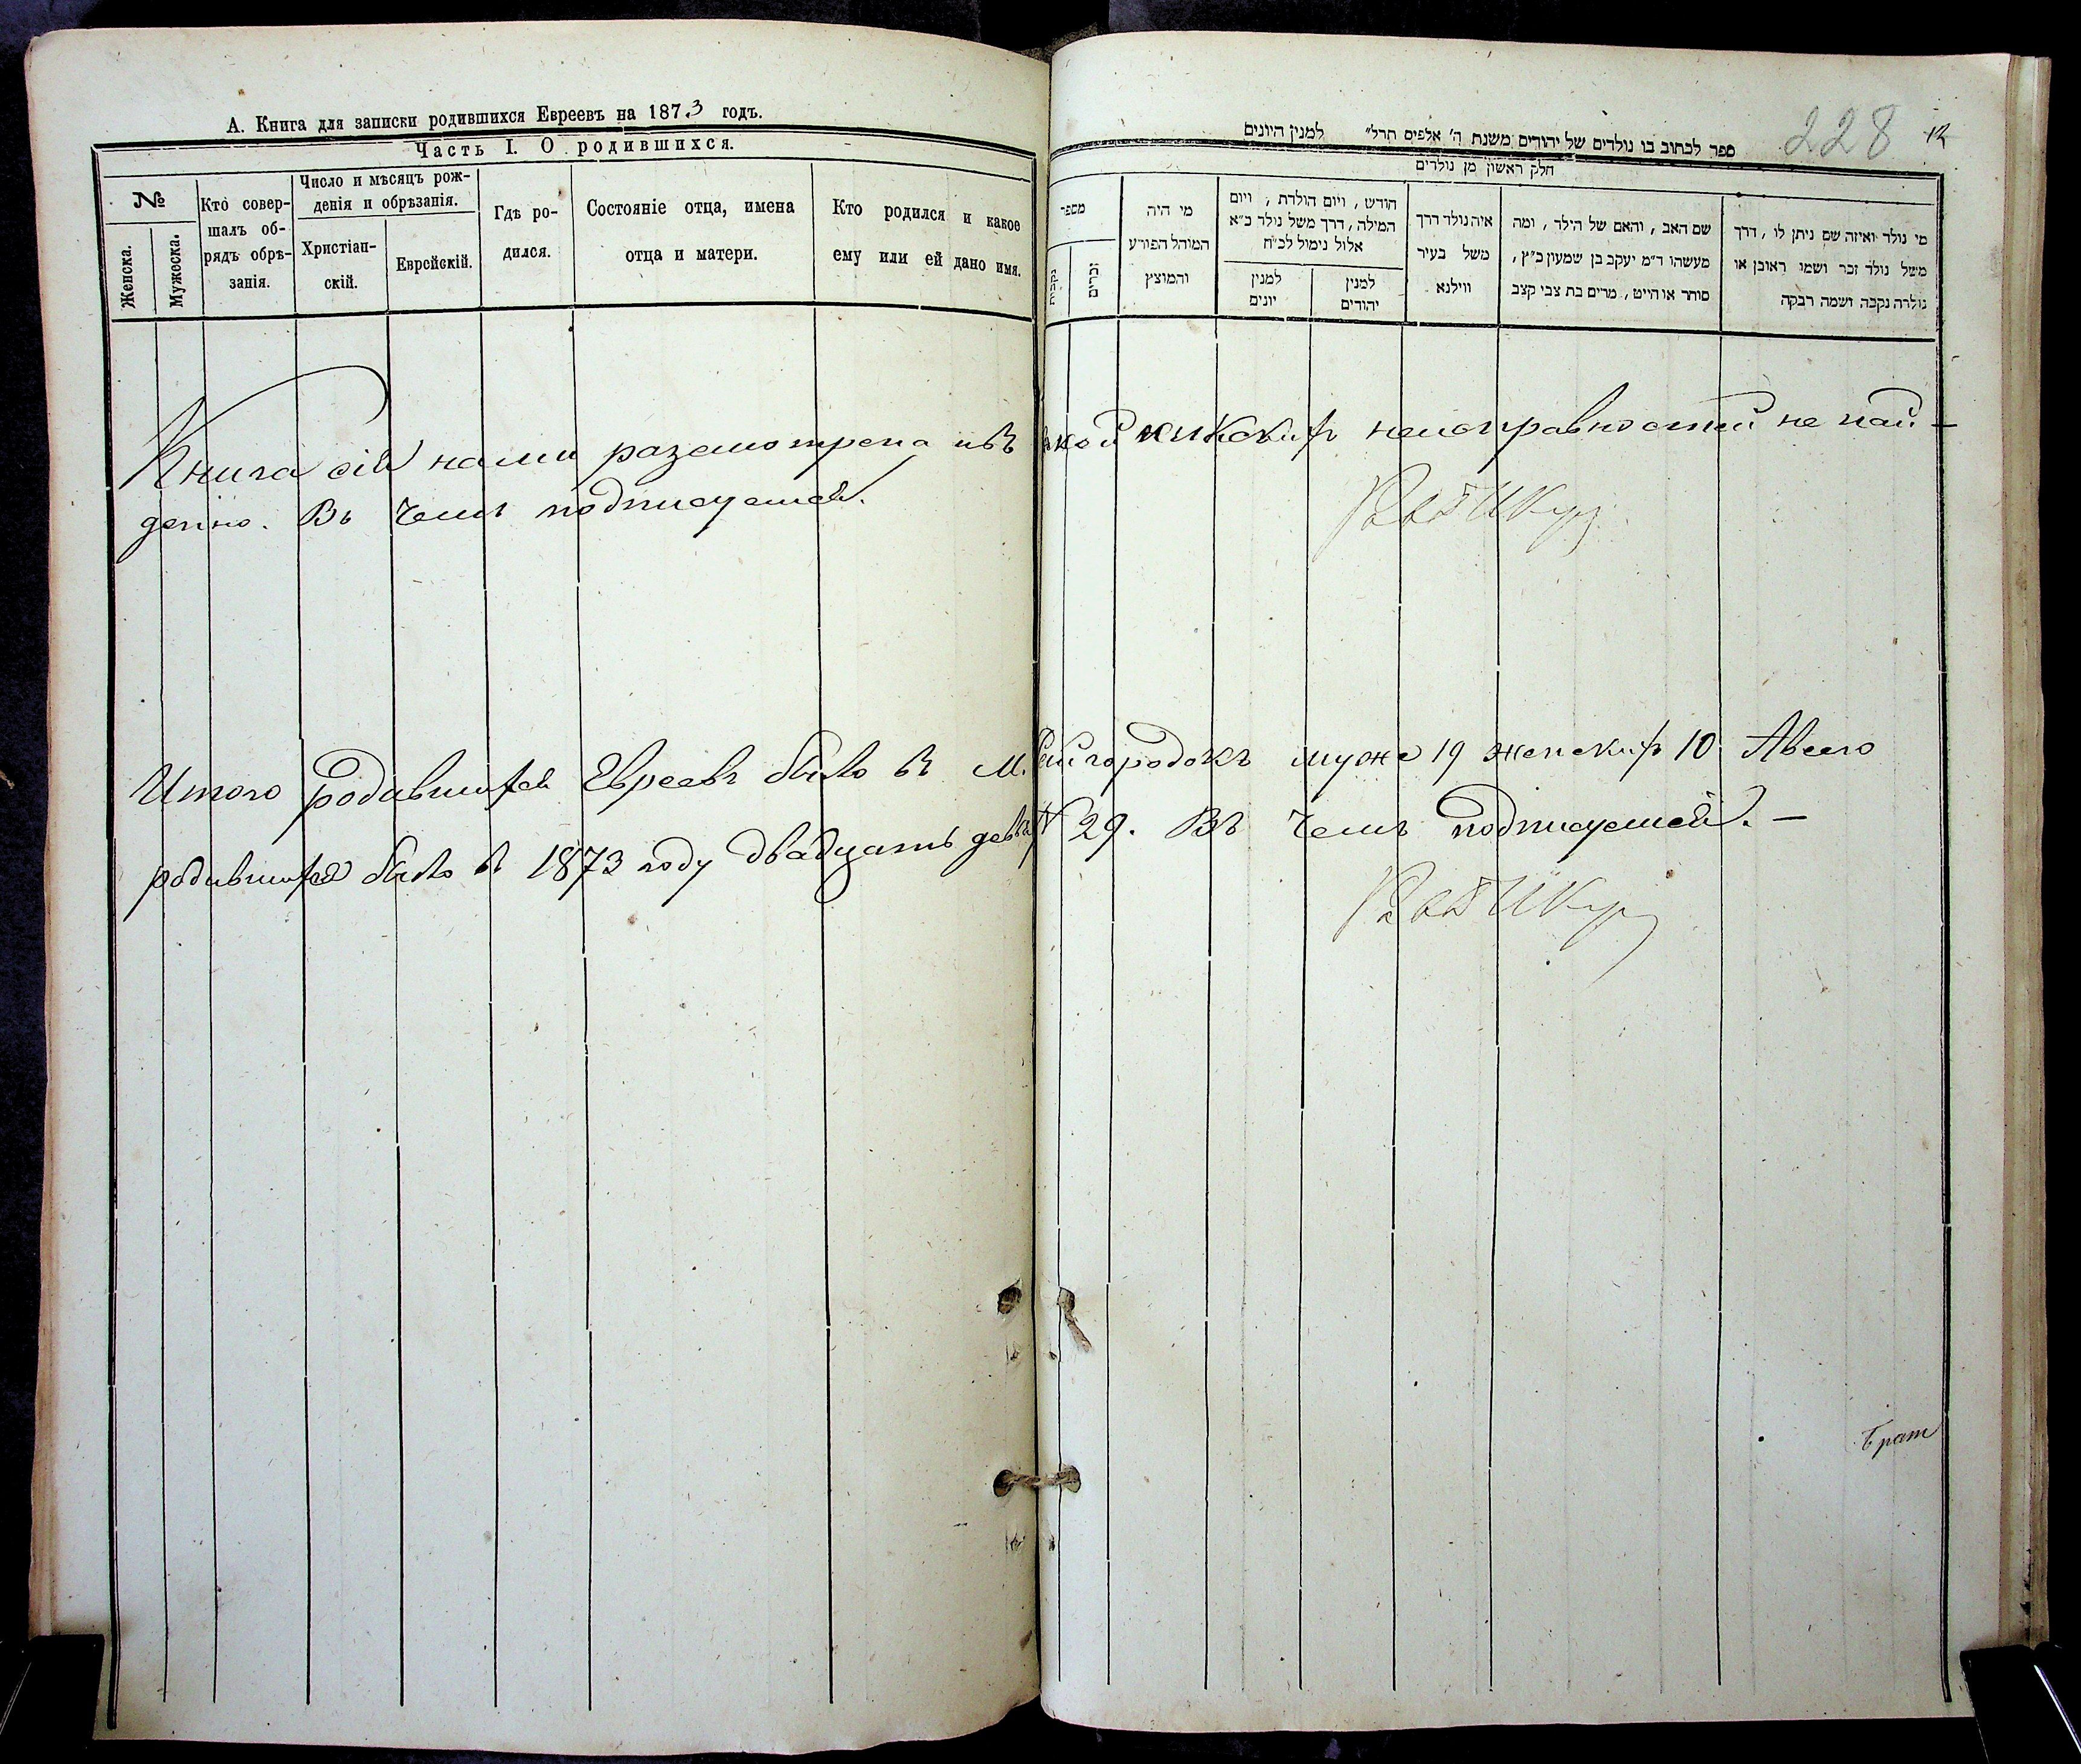 А. Книга для записки родившихся Евреевъ на 1873 годъ.
Часть I. О родившихся.
№
Женска.
Мужеска.
Кто совер-
шалъ об-
рядъ обрѣ-
занія.
Число и мѣсяцъ рож-
денія и обрѣзанія.
Христіан-
скій.
Еврейскій.
Гдѣ ро-
дился.
Состояніе отца, имена
отца и матери.
Кто родился и какое
ему или ей дано имя.
228 12
ספר לכתוב בו נולדים של יהודים משנת ה' אלפים תרל" למנין היונים
חלק ראשון מן נולדים
מספר
נקבות
זכרים
מי היה
המוהל הפורע
והמוצץ
חודש, ויום הולדת, ויום
המילה, דרך משל נולד כ"א
אלול נימול לכ"ח
למנין
יונים
למנין
יהודים
איה נולד דרך
משל בעיר
ווילנא
שם האב, והאם של הילד, ומה
מעשהו ד"מ יעקב בן שמעון כ"ץ,
סוחר או חייט, מרים בת צבי קצב
מי נולד ואיזה שם ניתן לו, דרך
משל נולד זכר ושמו ראובן או
נולדה נקבה ושמה רבקה
Книга сія нами разсмотрена и въ ней никакихъ неисправностей не най-
дено. Въ чемъ подписуемся.
Итого родившихся Евреевъ было въ м. Райгородокъ муже 19 женскихъ 10 Авсего
родившихся было въ 1873 году двадцать девять 29. Въ чемъ подписуемся. —
Брат